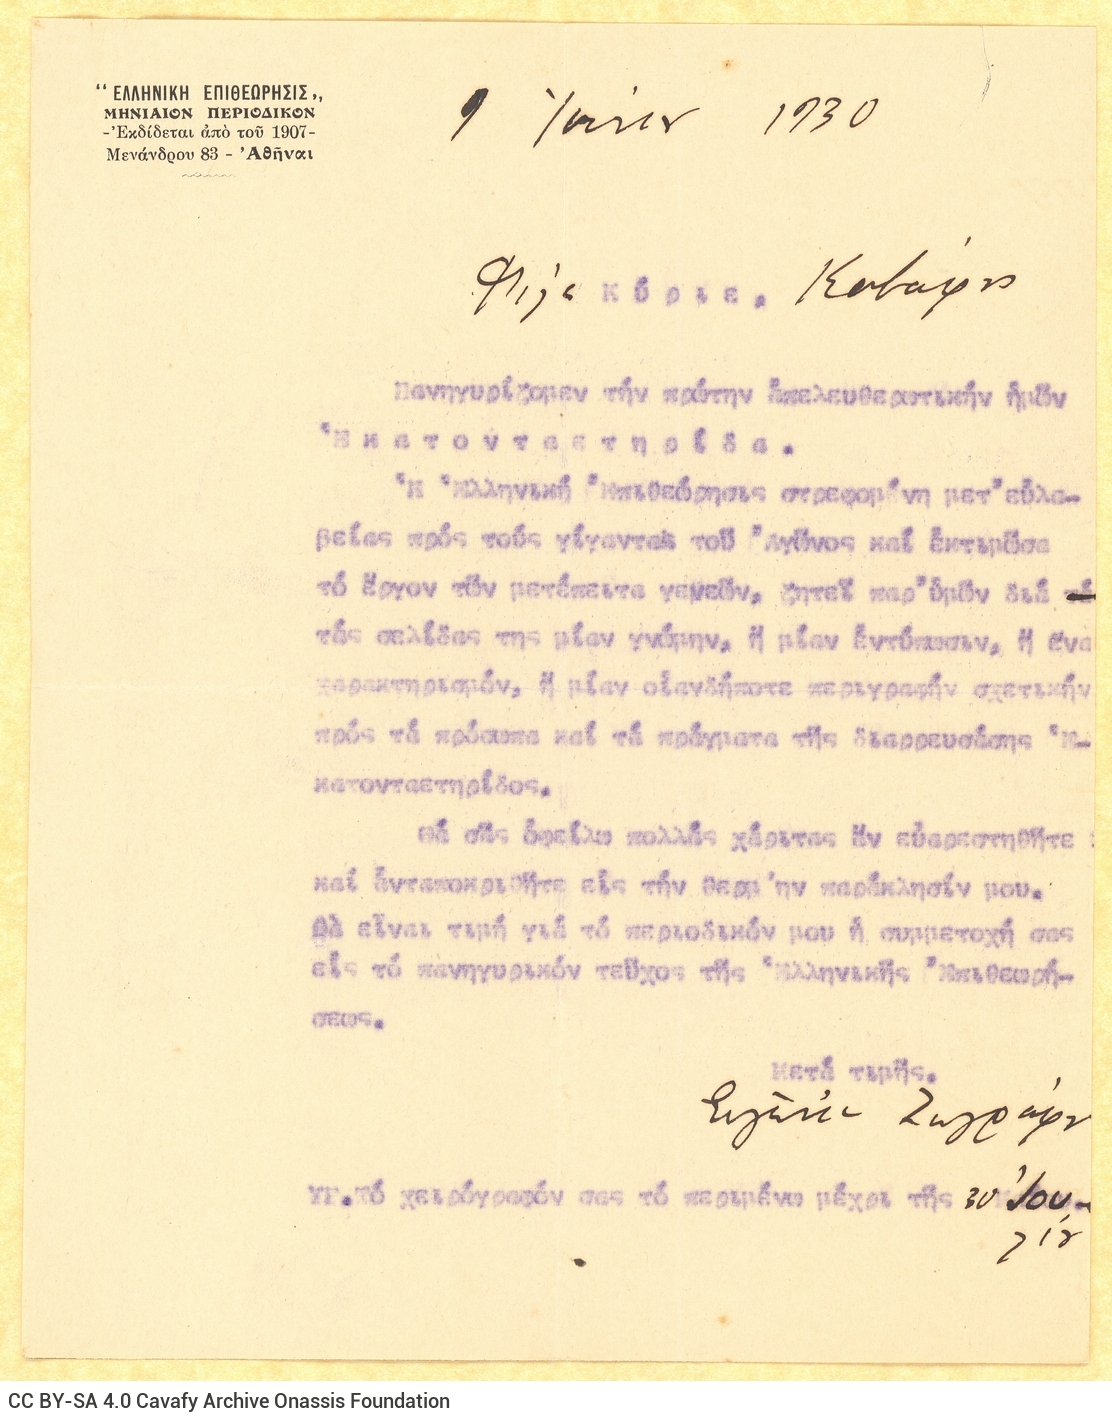 “ ΕΛΛΗΝΙΚΗ ΕΠΙΘΕΩΡΗΣΙΣ „
ΜΗΝΙΑΙΟΝ ΠΕΡΙΟΔΙΚΟΝ
-Ἐκδίδεται ἀπὸ τοῦ 1907-
Μενάνδρου 83 - Ἀθῆναι
9 Ἰουνίου 1930
Φίλε Κύριε, Καβάφη
Πανηγυρίζομεν τήν πρώτην ἀπελευθερωτικήν ἡμῶν
Ἑκατονταετηρίδα.
Ἡ Ἑλληνική Ἐπιθεώρησις στρεφομένη μετ᾽εὐλα-
βείας πρός τούς γίγαντας τοῦ Ἀγῶνος καί ἐκτιμῶσα
τό ἔργον τῶν μετέπειτα γενεῶν, ζητεῖ παρ᾽ὑμῶν διά
τάς σελίδας της μίαν γνώμην, ἤ μίαν ἐντύπωσιν, ἤ ἕνα
χαρακτηρισμόν, ἤ μίαν οἱανδήποτε περιγραφήν σχετικήν
πρός τά πρόσωπα καί τά πράγματα τῆς διαρρευσάσης Ἑ-
κατονταετηρίδος.
Θά σᾶς ὀφείλω πολλάς χάριτας ἄν εὐαρεστηθῆτε
καί ἀνταποκριθῆτε εἰς τήν θερμ´ην παράκλησίν μου.
Θὰ εἶναι τιμή γιά τό περιοδικόν μου ἡ συμμετοχή σας
εἰς τό πανηγυρικόν τεῦχος τῆς Ἑλληνικῆς Ἐπιθεωρή-
σεως.
Μετά τιμῆς.
Εὐγενία Ζωγράφου
ΥΓ.Τό χειρόγραφόν σας τό περιμένω μέχρι τῆς 30 Ἰου-
λίου
CC BY-SA 4.0 Cavafy Archive Onassis Foundation